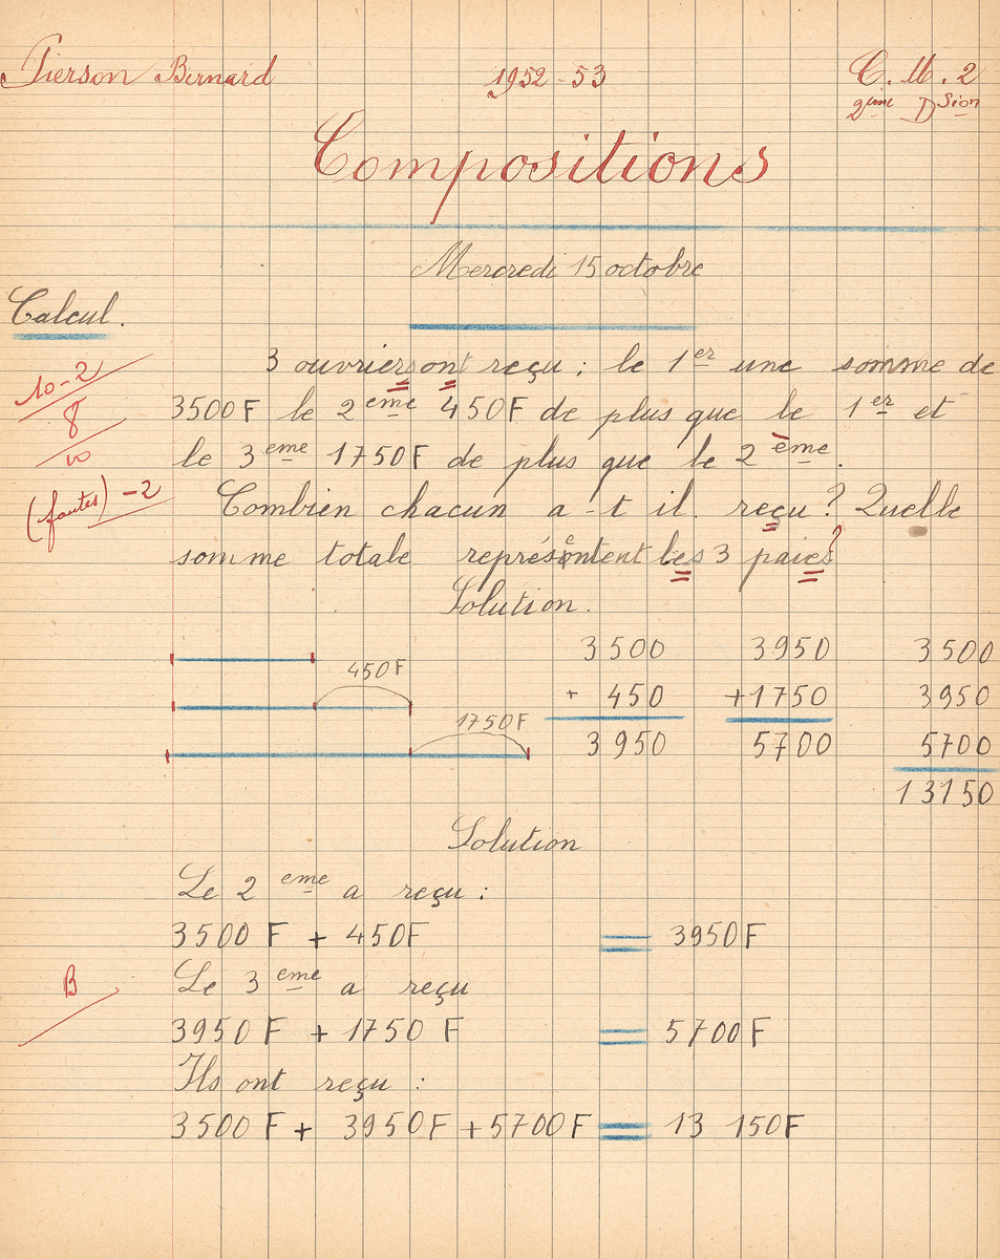 Pierson Bernard 1952-53 C.M.2
2ème Dsion
Compositions
Mercredi 15 octobre
Calcul.
3 ouvriers ont reçu : le 1er une somme de
10-2
3500F le 2eme 450F de plus que le 1er et
8
le 3eme 1750F de plus que le 2ème.
10
(fautes) -2
Combien chacun a-t il reçu? Quelle
somme totale représentent les 3 paies?
Solution.
3500 3950 3500
450F
+ 450 +1750 3950
1750F
3950 5700 5700
13150
Solution
Le 2eme a reçu :
3500 F + 450F = 3950F
B
Le 3eme a reçu
3950 F + 1750 F = 5700F
Ils ont reçu :
3500 F + 3950F + 5700F = 13 150F